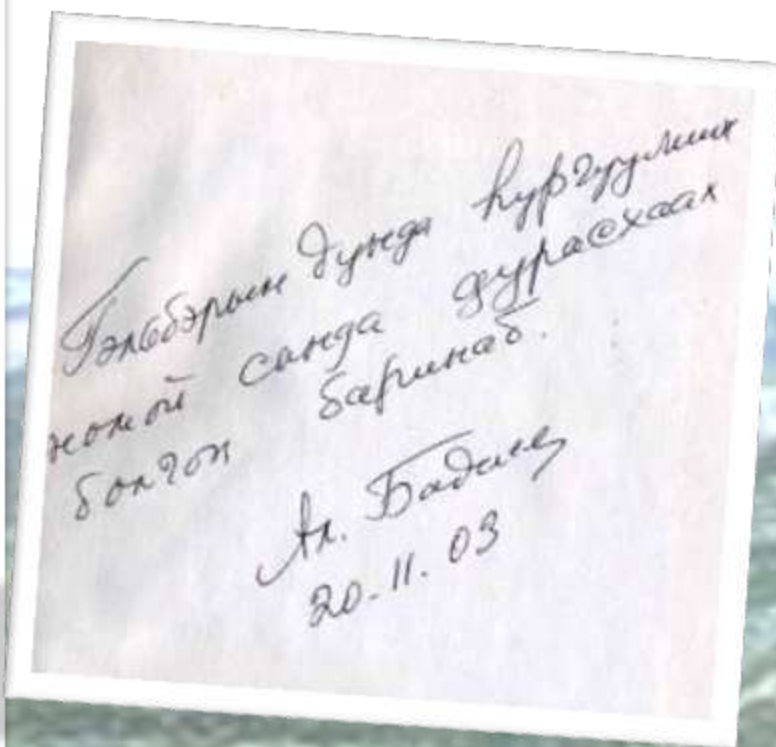 Гэлбэрын дунда һургуулиин
номой санда дурасхаал
болгон баринаб.
Ал. Бадаев
20.11.03